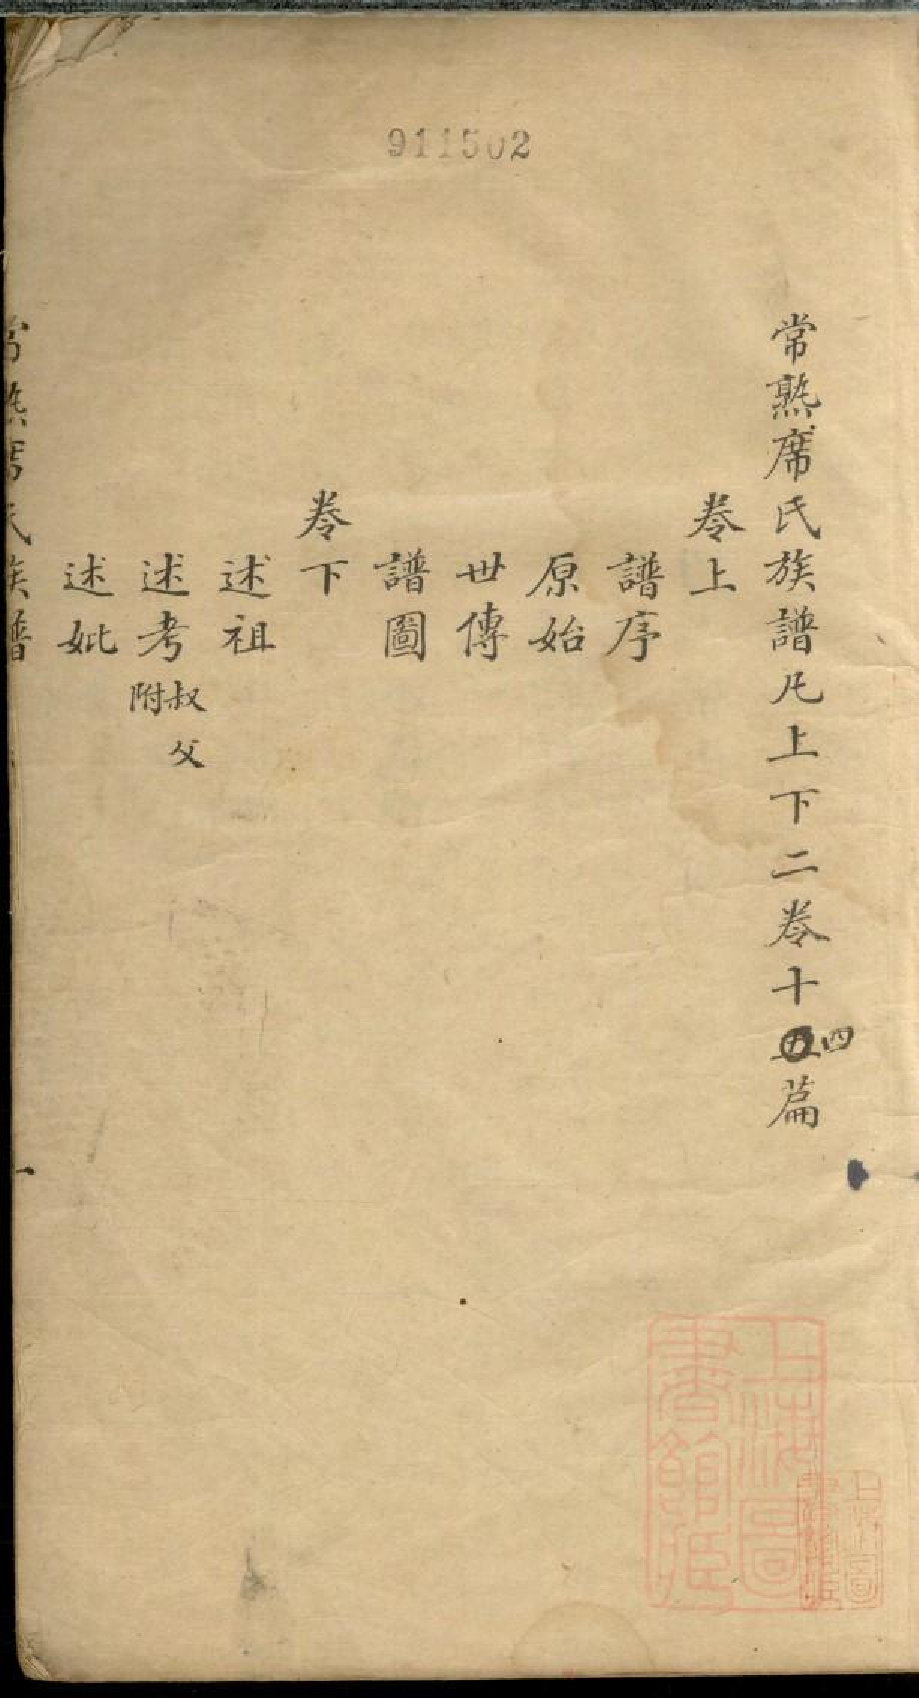 911502
常熟席氏族譜凡上下二卷十四篇
卷上
譜序
原始
世傳
譜圖
卷下
述祖
述考 叔父附
述妣
常熟席氏族譜
一
上海圖書館藏
上海圖書館藏